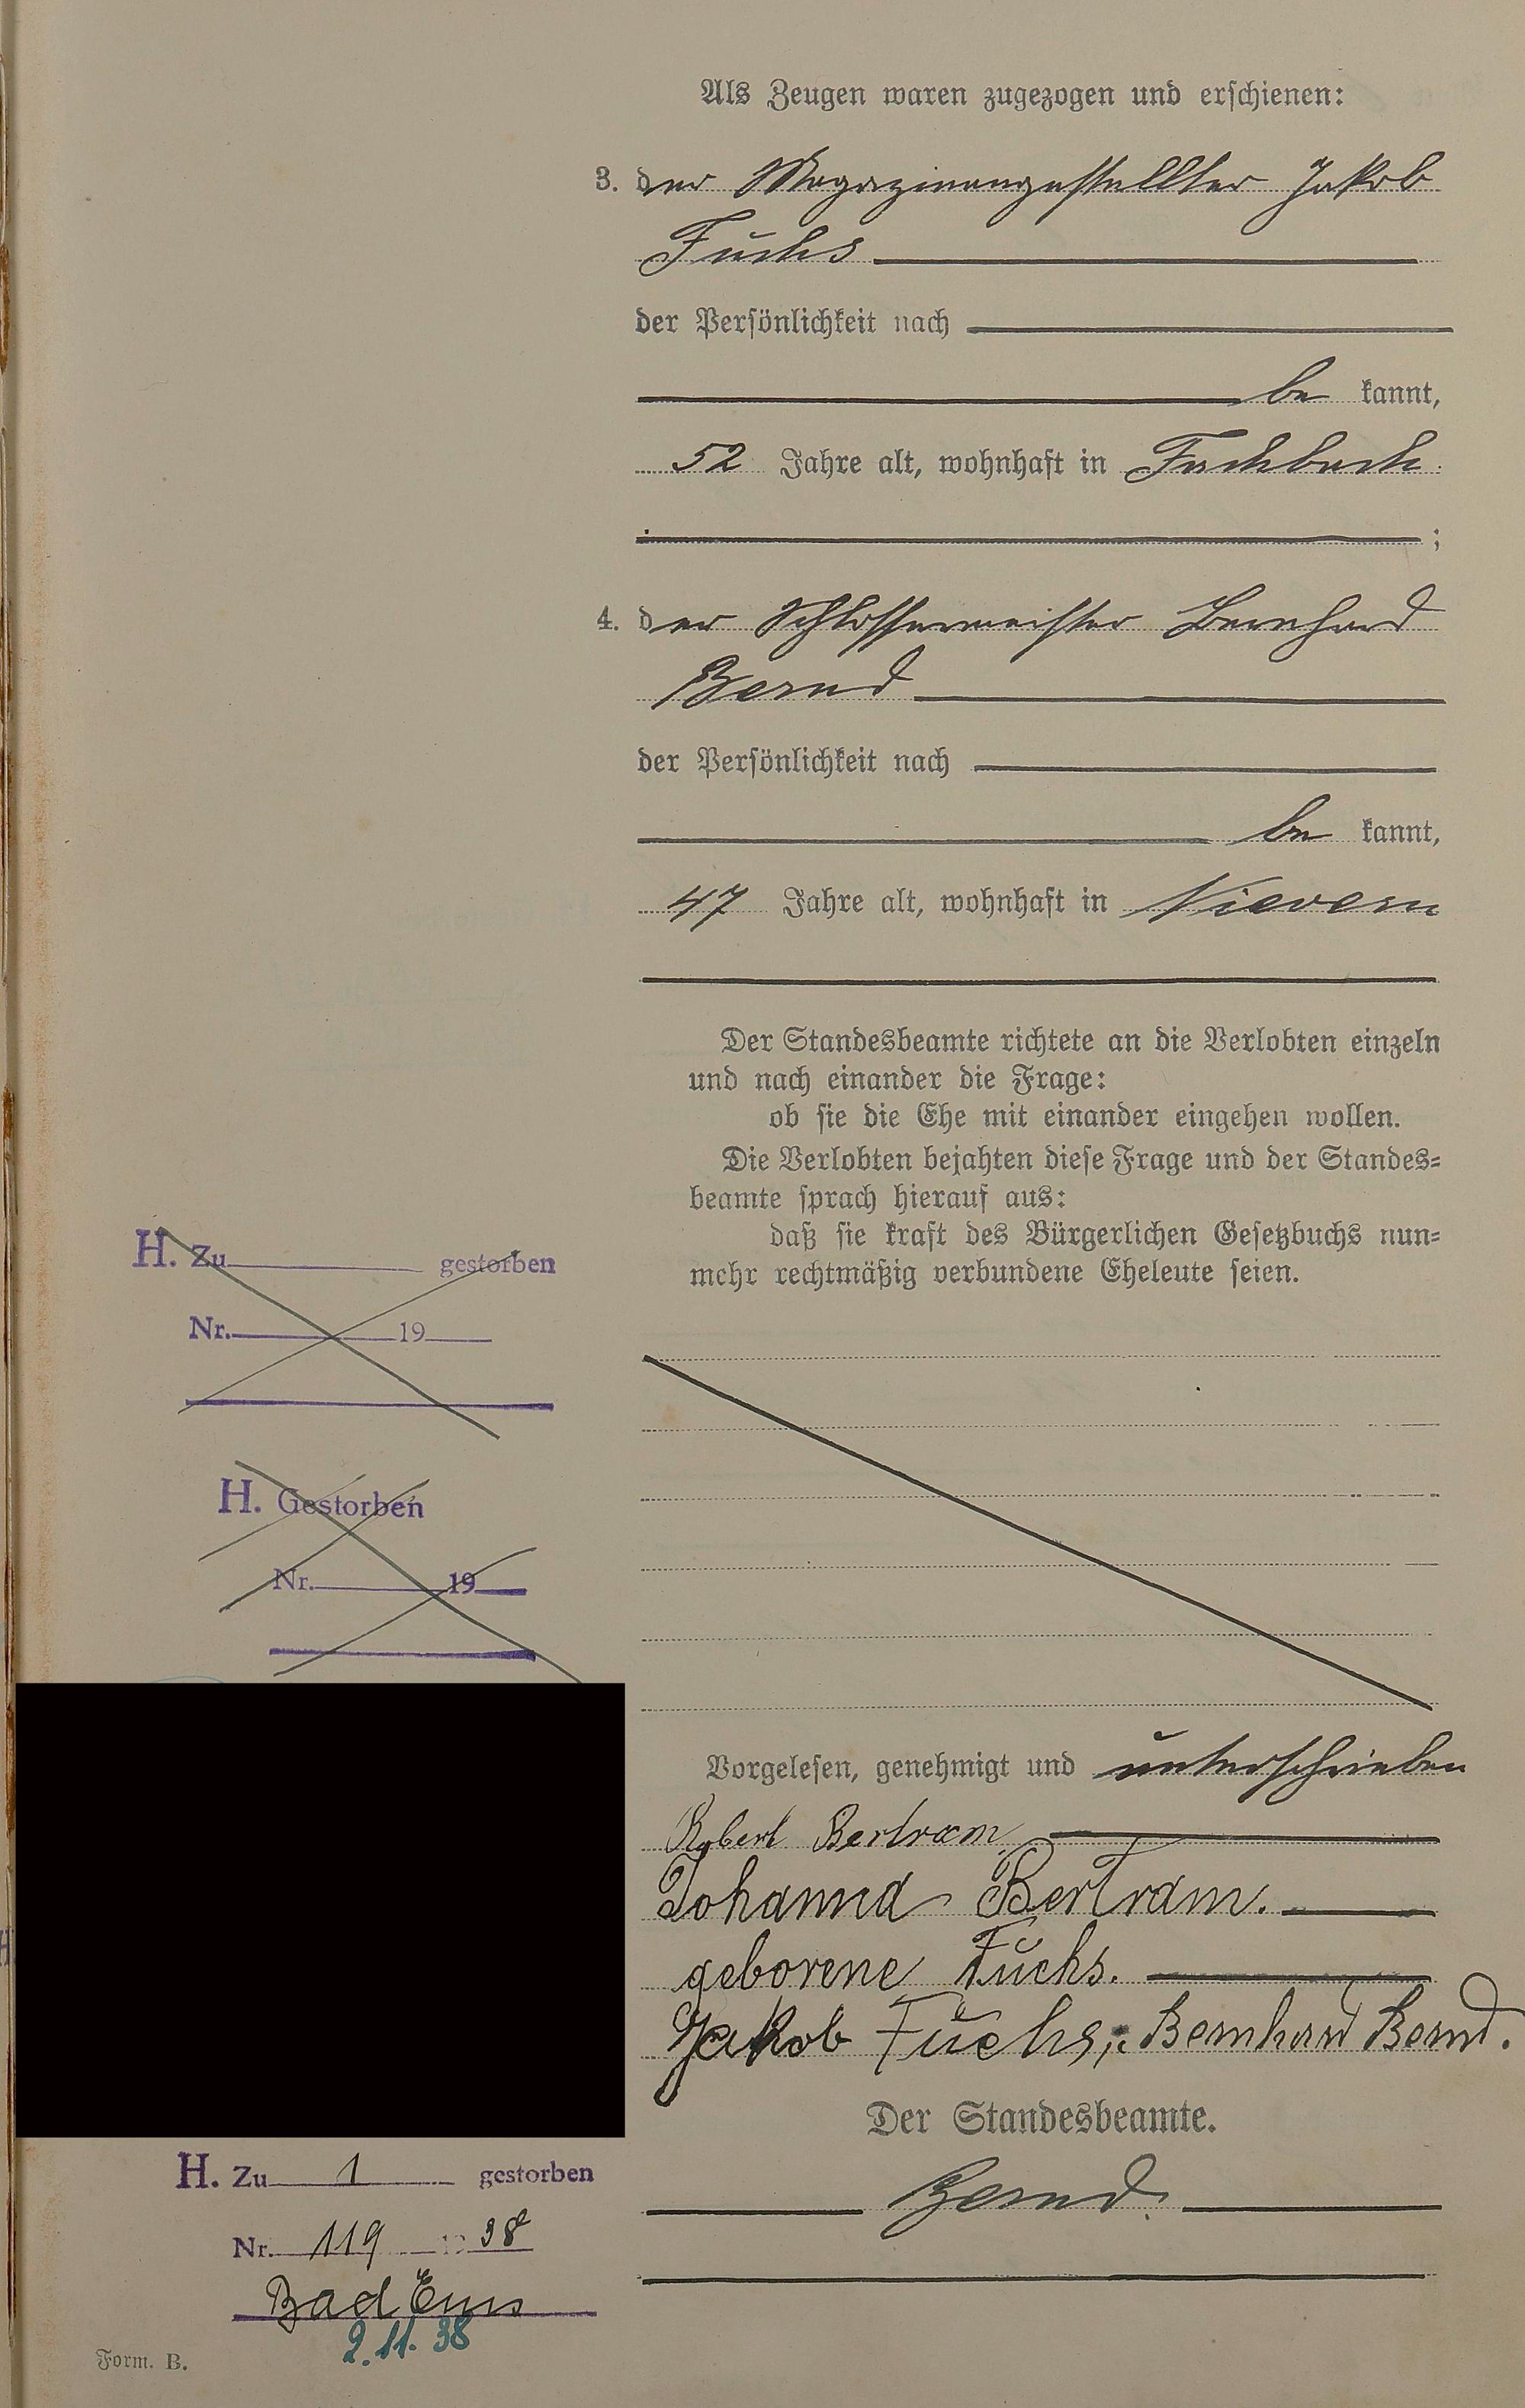 Als Zeugen waren zugezogen und erschienen:
3. der Magazinangestellter Jakob
Fuchs
der Persönlichkeit nach
be kannt,
52 Jahre alt, wohnhaft in Fachbach
;
4. der Schlossermeister Bernhard
Bernd
der Persönlichkeit nach
be kannt,
47 Jahre alt, wohnhaft in Nievern
Der Standesbeamte richtete an die Verlobten einzeln
und nach einander die Frage:
ob sie die Ehe mit einander eingehen wollen.
Die Verlobten bejahten diese Frage und der Standes-
beamte sprach hierauf aus:
daß sie kraft des Bürgerlichen Gesetzbuchs nun-
mehr rechtmäßig verbundene Eheleute seien.
H. Zu gestorben
Nr. 19
H. Gestorben
Nr. 19
Vorgelesen, genehmigt und unterschrieben
Robert Bertram
Johanna Bertram.
geborene Fuchs.
Jakob Fuchs; Bernhard Bernd.
Der Standesbeamte.
Bernd.
H. Zu 1 gestorben
Nr. 119 1938
Bad Ems
2.11.38
Form. B.